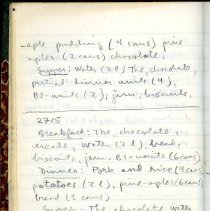 -aple pudding (4 cans) pine
aples (2 cans) chocolate.
Supper: Water (2 l) Thé, chocolate,
partial dinner units (9)
B2-units (2), jam, biscuits.
2705
Breakfast: Thé, chocolate,
, water (2 l), bread,
biscuits, jam. B1-units (6 cans)
Dinner: Pork and rice (4 cans)
potatoes (2 l), pine-aples (6 cans)
(3 cans)
Supper: Thé, chocolate, water